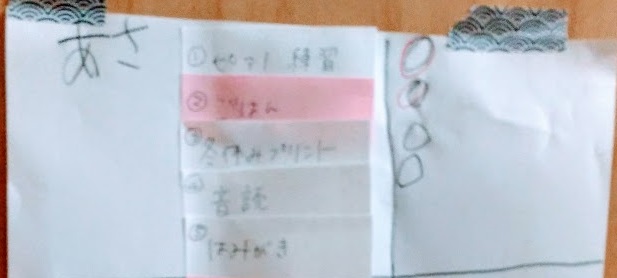 あさ
①ピアノ 練習
②ごはん
③冬休みプリント
④音読
⑤はみがき